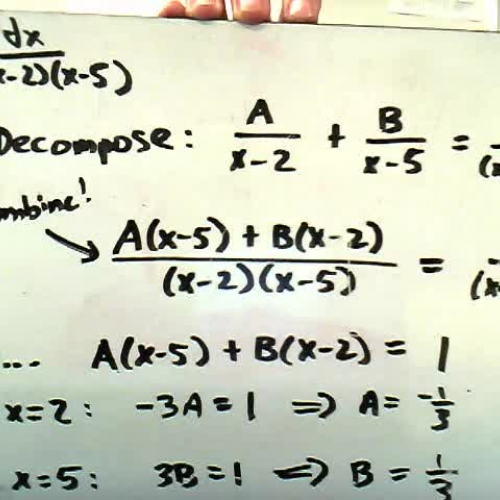 dx
x-2)(x-5)
Decompose: A/(x-2) + B/(x-5) =
mbine!
(A(x-5) + B(x-2))/((x-2)(x-5)) =
... A(x-5) + B(x-2) = 1
x=2: -3A = 1 => A = -1/3
x=5: 3B = 1 <=> B = 1/3